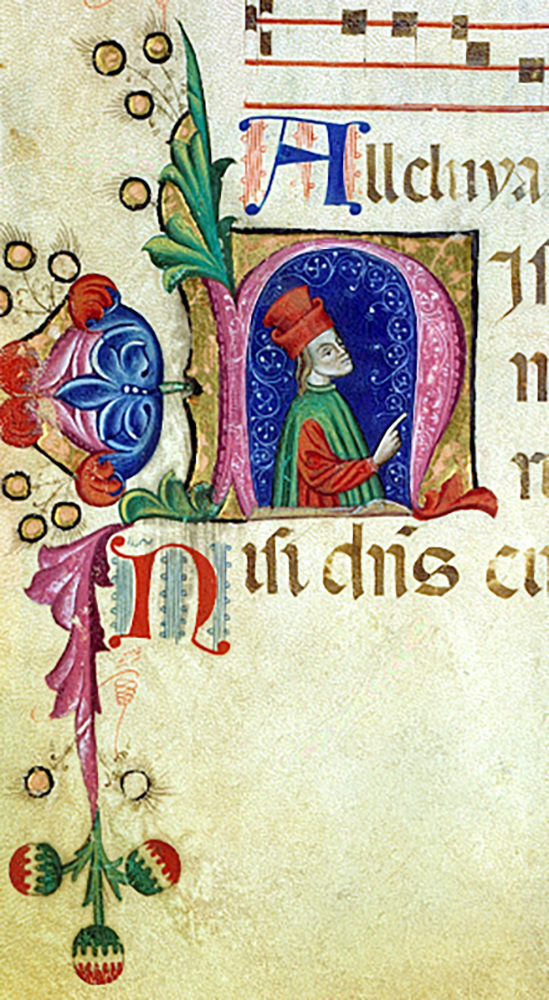 Alleluya
NIs
n
Nisi dn̄s cu